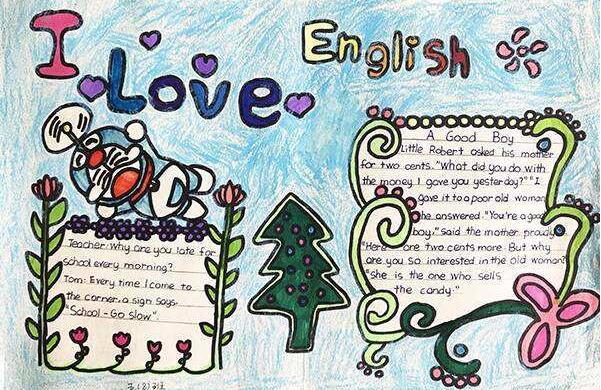 I Love English
Teacher: Why are you late for
school every morning?
Tom: Every time I come to
the corner, a sign says,
"School - Go slow".
A Good Boy
Little Robert asked his mother
for two cents. "What did you do with
the money I gave you yesterday?" "I
gave it to a poor old woman,
he answered. "You're a good
boy," said the mother proudly.
"Here are two cents more. But why
are you so interested in the old woman?
"she is the one who sells
the candy."